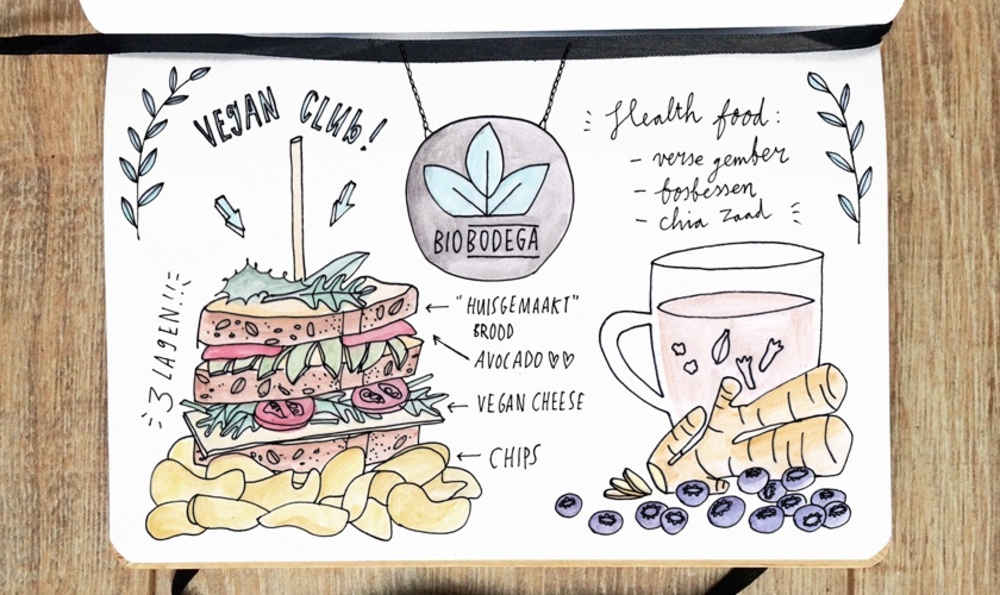 VEGAN CLUB!
BIOBODEGA
Health food:
- verse gember
- bosbessen
- chia zaad
3 LAGEN!!!
"HUISGEMAAKT"
BROOD
AVOCADO ♡♡
VEGAN CHEESE
CHIPS